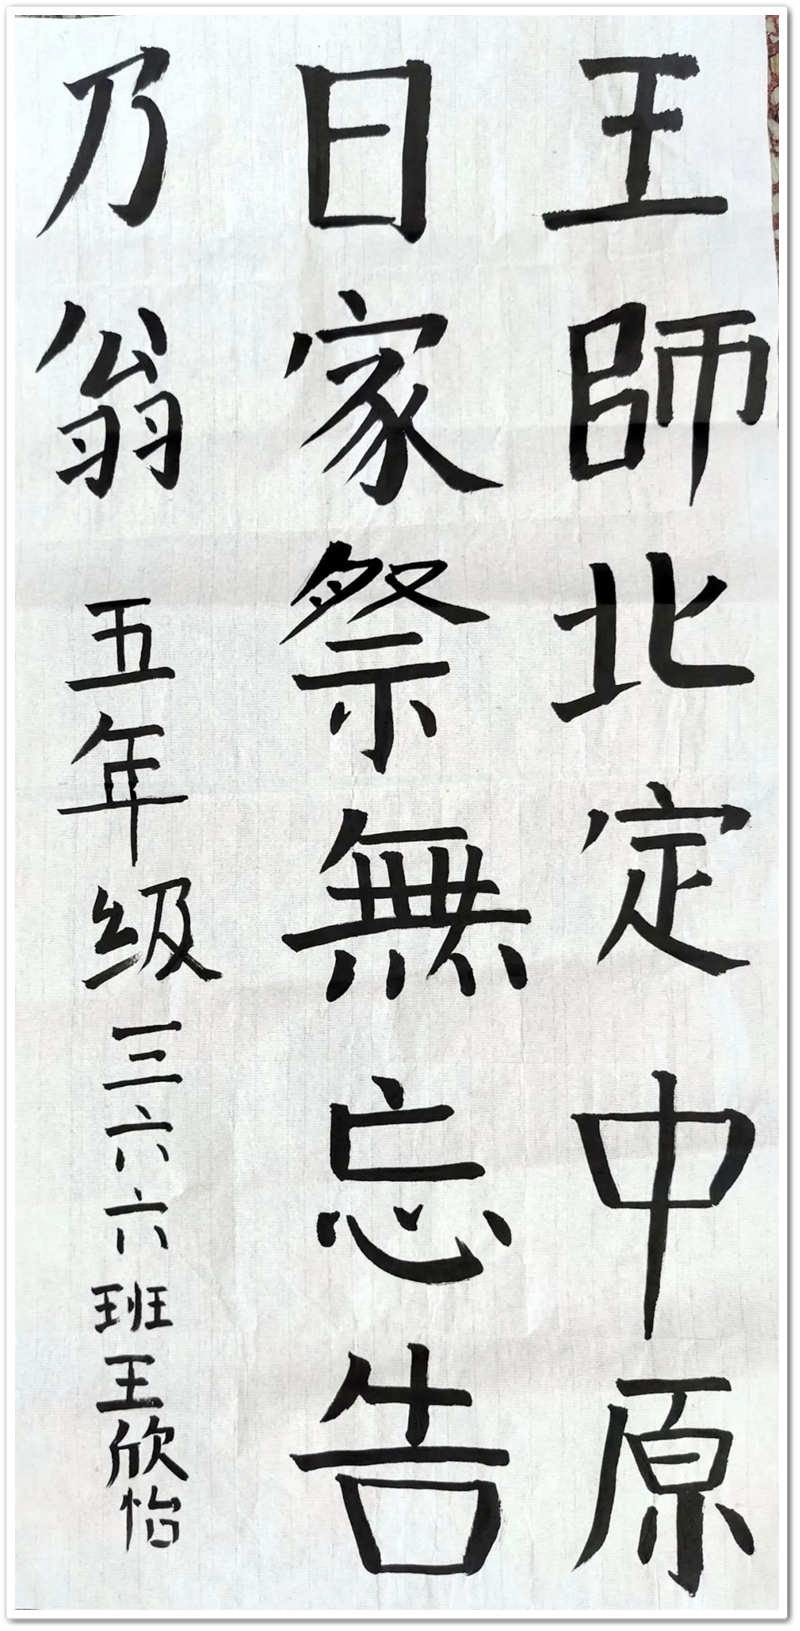 王師北定中原
日家祭無忘告
乃翁
五年级三六六班王欣怡